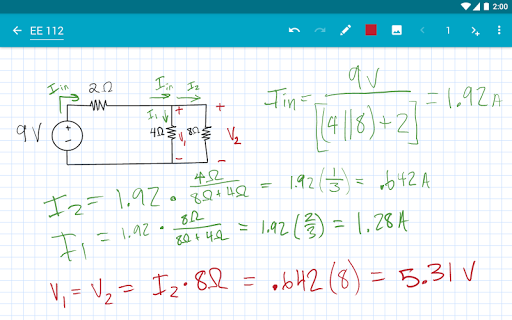 2:00
EE 112 1
Iin 2Ω Iin I2
I1 + +
9V + − 4Ω V1 8Ω V2
− −
Iin = 9V / [(4||8)+2] = 1.92A
I2 = 1.92 · 4Ω / 8Ω+4Ω = 1.92(1/3) = .642A
I1 = 1.92 · 8Ω / 8Ω+4Ω = 1.92(2/3) = 1.28A
V1 = V2 = I2 · 8Ω = .642(8) = 5.31 V